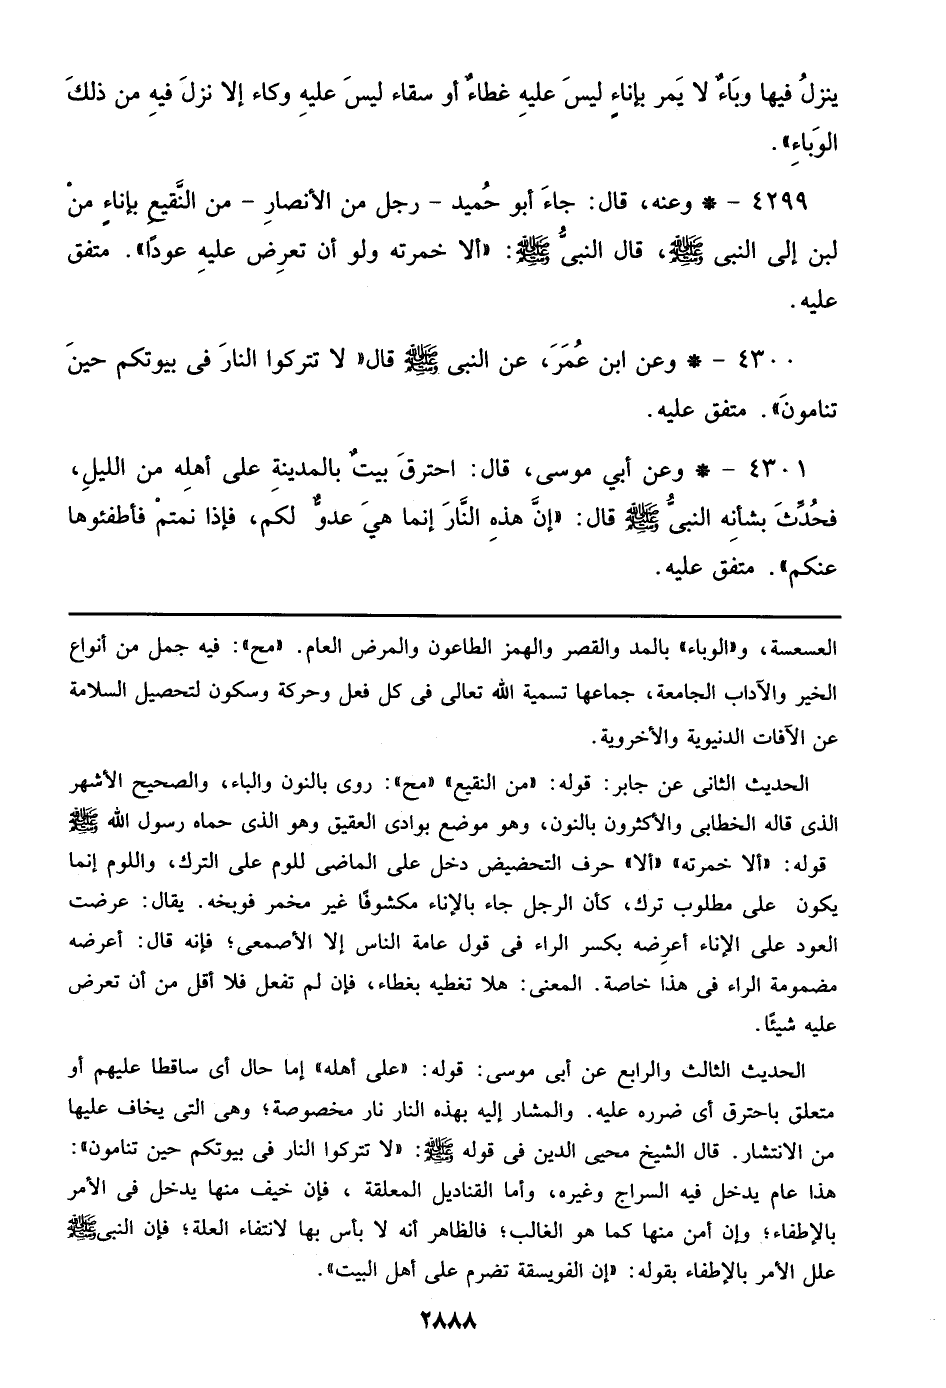 ينزلُ فيها وبَاءٌ لا يَمر بإناءٍ ليسَ عليهِ غطاءٌ أو سقاء ليسَ عليهِ وكاء إلا نزلَ فيهِ من ذلكَ
الوَباءِ».
٤٢٩٩ - * وعنه، قال: جاءَ أبو حُميد - رجل من الأنصارِ - من النَّقيعِ بإناءٍ منْ
لبن إلى النبى ﷺ، قال النبىُّ ﷺ: «ألا خمرته ولو أن تعرِض عليهِ عودًا». متفق
عليه.
٤٣٠٠ - * وعن ابن عُمَرَ، عن النبى ﷺ قال« لا تتركوا النارَ فى بيوتكم حينَ
تنامونَ». متفق عليه.
٤٣٠١ - * وعن أبي موسى، قال: احترقَ بيتٌ بالمدينةِ على أهلِه من الليلِ،
فحُدِّثَ بشأنِه النبىُّ ﷺ قال: «إنَّ هذهِ النَّارَ إنما هيَ عدوٌّ لكم، فإذا نمتمْ فأطفئوها
عنكم». متفق عليه.
العسعسة، و«الوباء» بالمد والقصر والهمز الطاعون والمرض العام. «مح»: فيه جمل من أنواع
الخير والآداب الجامعة، جماعها تسمية الله تعالى فى كل فعل وحركة وسكون لتحصيل السلامة
عن الآفات الدنيوية والأخروية.
الحديث الثانى عن جابر: قوله: «من النقيع» «مح»: روى بالنون والباء، والصحيح الأشهر
الذى قاله الخطابى والأكثرون بالنون، وهو موضع بوادى العقيق وهو الذى حماه رسول الله ﷺ
قوله: «ألا خمرته» «ألا» حرف التحضيض دخل على الماضى للوم على الترك، واللوم إنما
يكون على مطلوب ترك، كأن الرجل جاء بالإناء مكشوفًا غير مخمر فوبخه. يقال: عرضت
العود على الإناء أعرِضه بكسر الراء فى قول عامة الناس إلا الأصمعى؛ فإنه قال: أعرضه
مضمومة الراء فى هذا خاصة. المعنى: هلا تغطيه بغطاء، فإن لم تفعل فلا أقل من أن تعرض
عليه شيئًا.
الحديث الثالث والرابع عن أبى موسى: قوله: «على أهله» إما حال أى ساقطا عليهم أو
متعلق باحترق أى ضرره عليه. والمشار إليه بهذه النار نار مخصوصة؛ وهى التى يخاف عليها
من الانتشار. قال الشيخ محيى الدين فى قوله ﷺ: «لا تتركوا النار فى بيوتكم حين تنامون»:
هذا عام يدخل فيه السراج وغيره، وأما القناديل المعلقة ، فإن خيف منها يدخل فى الأمر
بالإطفاء؛ وإن أمن منها كما هو الغالب؛ فالظاهر أنه لا بأس بها لانتفاء العلة؛ فإن النبىﷺ
علل الأمر بالإطفاء بقوله: «إن الفويسقة تضرم على أهل البيت».
٢٨٨٨